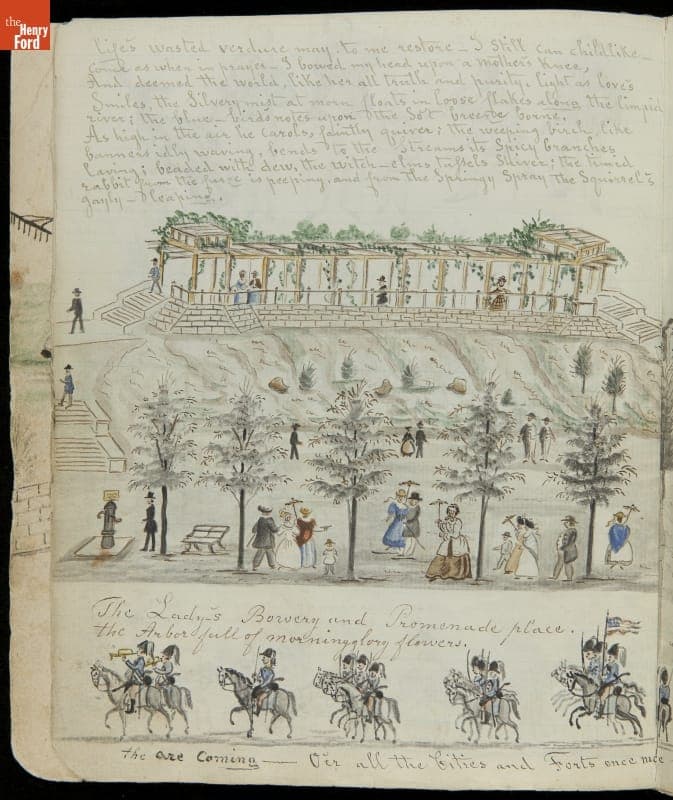 the
Henry
Ford
life's wasted verdure may to me restore – I still can childlike –
come as when in prayer – I bowed my head upon a mother's knee,
And deemed the world, like her all truth and purity, light as love's
Smiles, the Silvery mist at morn floats in loose flakes along the limpid
river; the blue – bird's notes upon the Soft breeze borne.
As high in the air he carols, faintly quiver; the weeping birch, like
banners idly waving, bends to the streams its Spicy branches
laving; beaded with dew, the witch – elms tassels Shiver; the timid
rabbit from the furze is peeping, and from the Springy Spray the Squirrel's
gayly – leaping.
The Lady's Bowery and Promenade place.
the Arbor full of morningglory flowers.
the are Coming — O'er all the Cities and Forts once more